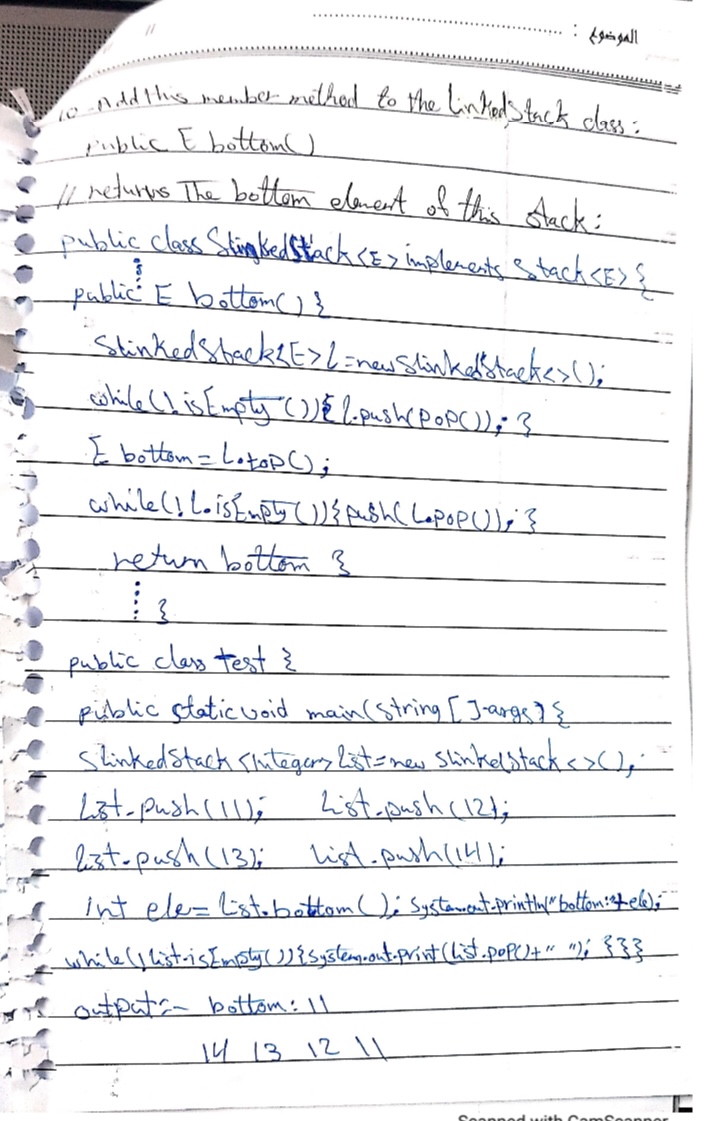 الموضوع :
10-Add this member method to the LinkedStack class:
public E bottom()
// returns The bottom element of this stack:
public class SlinkedStack<E> implements Stack<E> {
public E bottom() {
SlinkedStack<E> L = new SlinkedStack<>();
while(!isEmpty()){ L.push(pop()); }
E bottom = L.top();
while(!L.isEmpty()){ push(L.pop()); }
return bottom }
}
public class test {
public static void main(String [] args) {
SlinkedStack<Integer> list = new SlinkedStack<>();
list.push(11); list.push(12);
list.push(13); list.push(14);
int ele = list.bottom(); System.out.println("bottom:"+ele);
while(!list.isEmpty()){System.out.print(list.pop()+" "); }}}
output:- bottom: 11
14 13 12 11